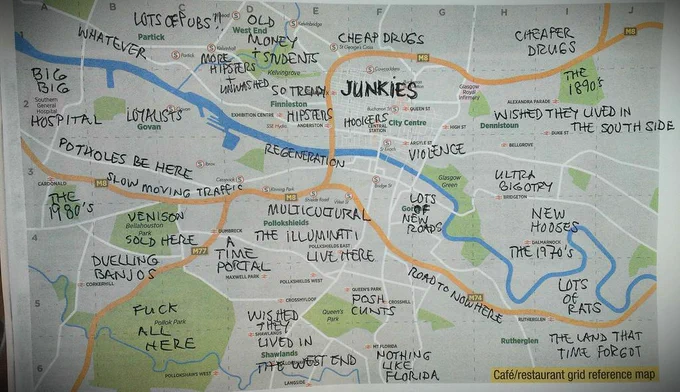 LOTS OF PUBS!!
OLD
MONEY
+ STUDENTS
West End
WHATEVER
Partick
Partick
Kelvinbridge
St George's Cross
CHEAP DRUGS
M8
CHEAPER
DRUGS
M8
MORE
HIPSTERS
+
UNWASHED
Kelvingrove
SO TRENDY
Finnieston
HIPSTERS
EXHIBITION CENTRE
ANDERSTON
Cowcaddens
JUNKIES
Glasgow
Royal
Infirmary
THE
1890's
ALEXANDRA PARADE
BIG
BIG
Southern
General
Hospital
HOSPITAL
LOYALISTS
Govan
Govan
HOOKERS
CENTRAL
STATION
Buchanan St
QUEEN ST
City Centre
HIGH ST
Dennistoun
WISHED THEY LIVED IN
THE SOUTH SIDE
DUKE ST
BELLGROVE
ARGYLE ST
St Enoch
VIOLENCE
REGENERATION
POTHOLES BE HERE
Ibrox
CARDONALD
M8
SLOW MOVING TRAFFIC
Cessnock
Kinning Park
Shields Road
West St
Bridge St
M8
Glasgow
Green
ULTRA
BIGOTRY
BRIDGETON
THE
1980's
VENISON
Bellahouston
Park
SOLD HERE
DUMBRECK
M77
MULTICULTURAL
Pollokshields
THE ILLUMINATI
POLLOKSHIELDS EAST
LIVE HERE
LOTS
OF
NEW
ROADS
NEW
HOOSES
DALMARNOCK
THE 1970's
A
TIME
PORTAL
MAXWELL PARK
POLLOKSHIELDS WEST
DUELLING
BANJOS
CORKERHILL
ROAD TO NOWHERE
M74
LOTS
OF
RATS
RUTHERGLEN
QUEEN'S PARK
CROSSHILL
POSH
CUNTS
CROSSMYLOOF
Queen's
Park
FUCK
Pollok Park
ALL
HERE
WISHED
THEY
SHAWLANDS
LIVED IN
Shawlands
THE WEST END
POLLOKSHAWS WEST
LANGSIDE
MT FLORIDA
NOTHING
LIKE
FLORIDA
Rutherglen
THE LAND THAT
TIME FORGOT
Café/restaurant grid reference map